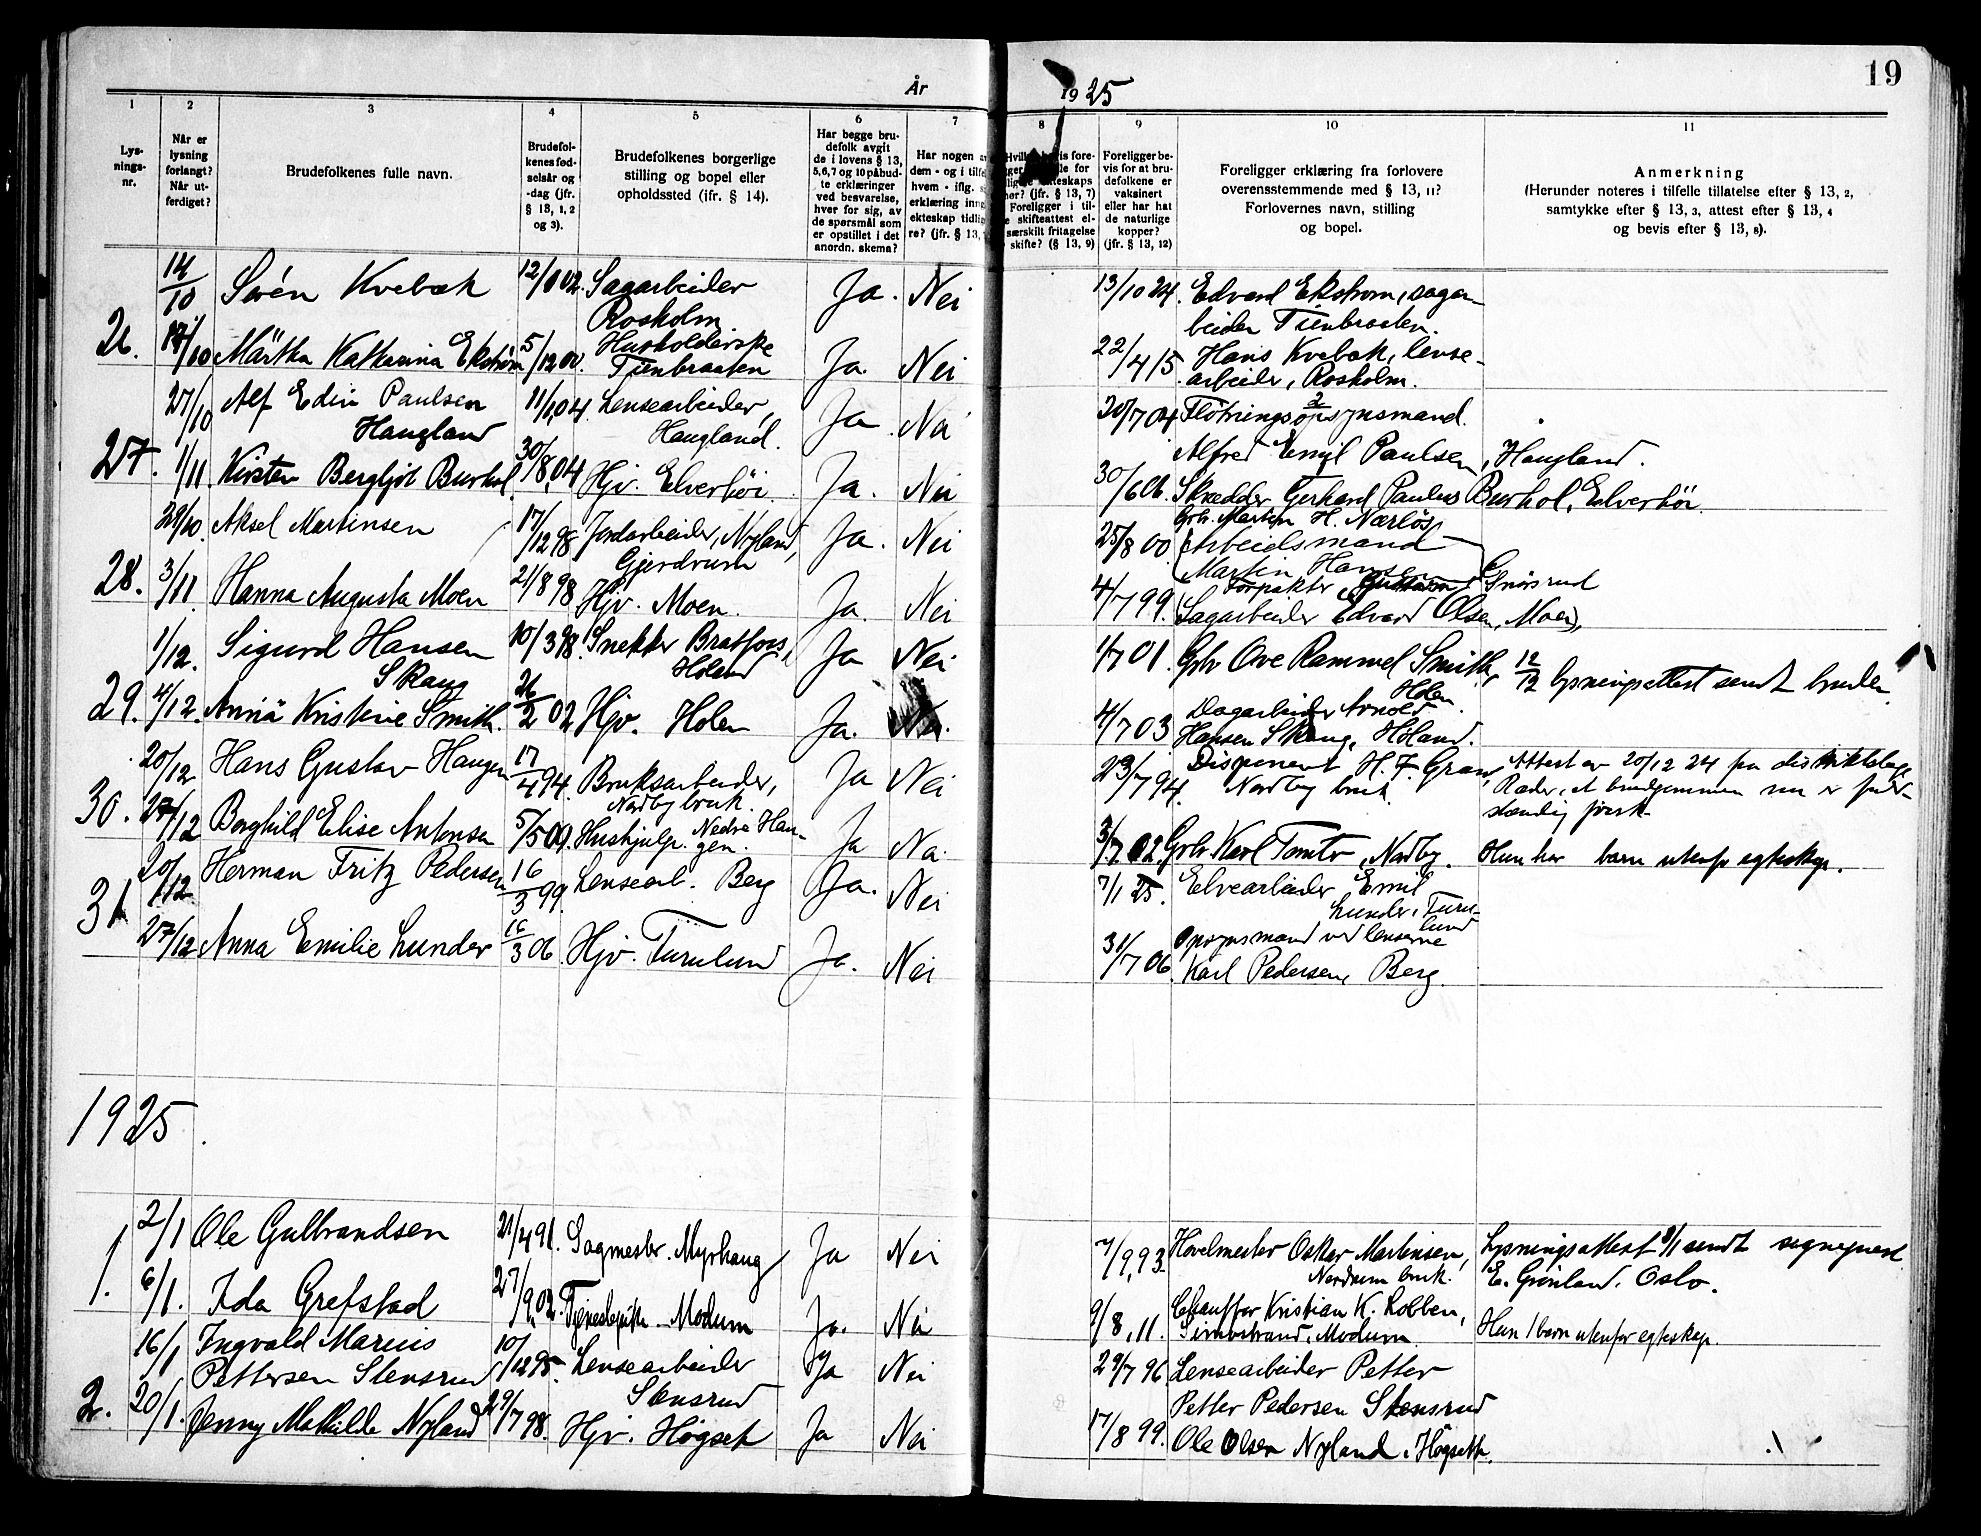 År
1925
19
1
2
3
4
5
6
7
8
9
10
11
Lys-
nings-
nr.
Når er
lysning
forlangt?
Når ut-
ferdiget?
Brudefolkenes fulle navn.
Brudefol-
kenes fød-
selsår og
-dag (jfr.
§ 13, 1, 2
og 3).
Brudefolkenes borgerlige
stilling og bopel eller
opholdssted (ifr. § 14).
Har begge bru-
defolk avgit
de i lovens § 13,
5, 6, 7 og 10 påbud-
te erklæringer
ved besvarelse,
hver for sig, av
de spørsmål som
er opstillet i det
anordn. skema?
Har nogen
dem - og i tilf
hvem - iflg.
erklæring inng
ekteskap tidlig
re? (jfr. § 13,
skifteattest el-
særskilt fritagelse
skifte? (§ 13, 9)
Foreligger be-
vis for at bru-
defolkene er
vaksinert
eller har hat
de naturlige
kopper?
(jfr. § 13, 12)
Foreligger erklæring fra forlovere
overensstemmende med § 13, 11?
Forlovernes navn, stilling
og bopel.
Anmerkning
(Herunder noteres i tilfelle tillatelse efter § 13, 2,
samtykke efter § 13, 3, attest efter § 13, 4
og bevis efter § 13, 8).
26.
14/10 Sagarbeider Ja. Nei 13/10 24. Edvard Ekstrøm, sagar-
Rosholm beider Tienbraaten.
Märtha Katharina Ekstrøm 5/12 00. Husholderske Ja. Nei 22/4 15 Hans Kvebæk, lense-
Tienbraaten arbeider, Rosholm.
27.
27/10 Alf Edin Paulsen Lensearbeider Ja. Nei 20/7 04 Fløtningsopsynsmand.
Haugland Haugland. Alfred Emil Paulsen, Haugland.
1/11 Kirsten Bergljot Burhol 30/8, 04 Hjv. Elverhöi. Ja. Nei 30/6 06. Skrædder Gerhard Paulus Burhol, Elverhöi.
28.
29/10. Aksel Martinsen 17/12 98 Jordarbeider, Nyland, Ja. Nei 25/8 00 Arbeidsmand
Gjerdrum Martin Hansen
3/11 Hanna Augusta Moen 21/8 98 Hjv. Moen. Ja. Nei 4/7 99. Forpakter
Sagarbeider Edvard Olsen, Moen,
29.
1/12. Sigurd Hansen 10/3 98. Snekker Bratfoss, Ja Nei 1/7 01. Grbr Ove Rammel Smith, 12/12 lysningsattest sendt bruden
Skaug Høland Holen
4/12. Anna Kristine Smith. 26/2 02 Hjv. Holen Ja. Nei. 4/7 03 Dagarbeider Arnold
Hansen Skaug, Høland.
30.
20/12 Hans Gustav Haugen 17/4 94. Bruksarbeider, Ja Nei 23/7 94. Disponent H. F. Gran, Attest av 20/12 24 fra distriktslæge
Nordby bruk. Nordby bruk. Ræder, at brudgommen nu er fuld-
stændig frisk.
27/12 Borghild Elise Antonsen 5/5 00. Hushjelp. Nedre Hau- Ja Nei. 3/7 02. Grbr Karl Tomter, Nordby. Hun har barn utenfor egteskap.
gen.
31
20/12 Herman Fritz Pedersen 16/3 99. Lensearb. Berg Ja. Nei 7/1 25. Elvearbeider Emil
Lunder, Turu-
lund
27/12 Anna Emilie Lunder 16/3 06. Hjv. Turulund Ja. Nei 31/7 06 Opsynsmand ved lenserne
Karl Pedersen, Berg.
1925.
1.
2/1 Ole Gulbrandsen 21/4 91. Sagmester. Myrhaug Ja Nei 7/9, 93. Høvelmester Oskar Martinsen, Lysningsattest 9/1 sendt sogneprest
Nordrum bruk. E. Grønland. Oslo.
6/1. Ida Grefstad 27/9, 02. Tjenestepike. Modum Ja. Nei 9/8, 11. Chauffør Kristian K. Lobben, Hun 1 barn utenfor egteskap
Simostrand, Modum
2.
16/1 Ingvald Marius 10/12 95. Lensearbeider Ja Nei 29/7 96. Lensearbeider Petter
Pettersen Stensrud Stensrud Petter Pedersen Stensrud
20/1. Jenny Mathilde Nyland 29/7 98. Hjv. Høgset Ja Nei 17/8 99. Ole Olsen Nyland, Høgseth.